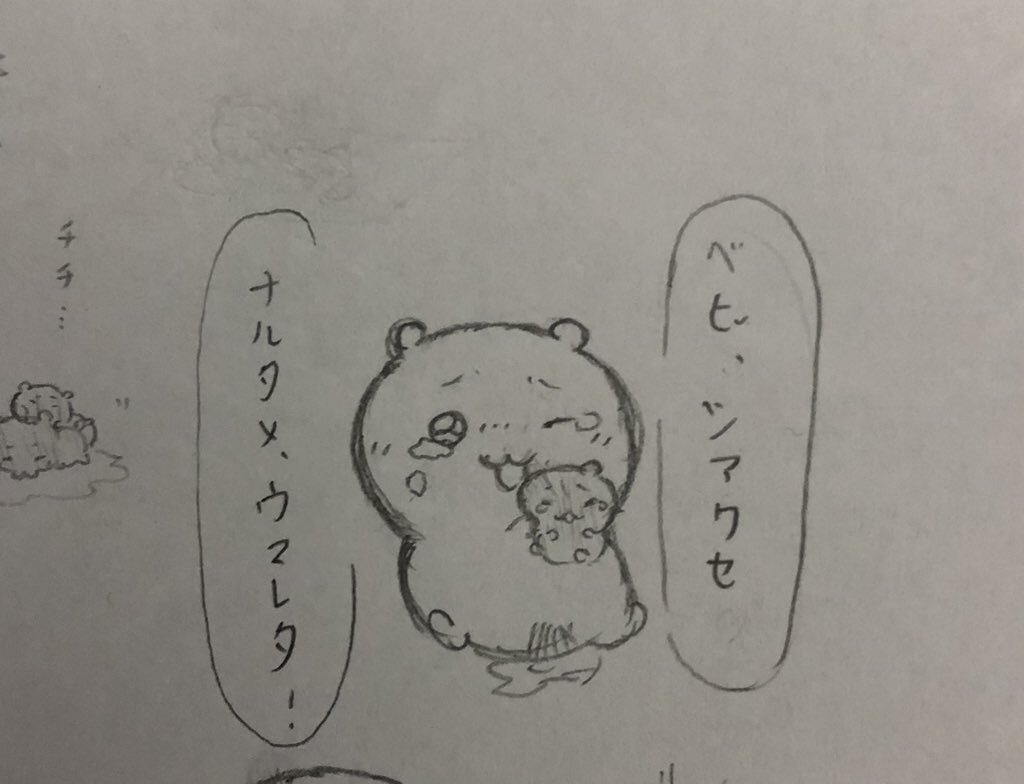 ベビ、シアワセ
ナルタメ、ウマレタ!
チチ…